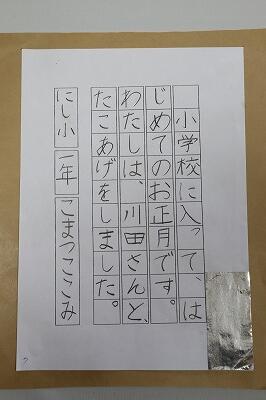 小学校に入って、は
じめてのお正月です。
わたしは、川田さんと、
たこあげをしました。
にし小 一年 こまつここみ